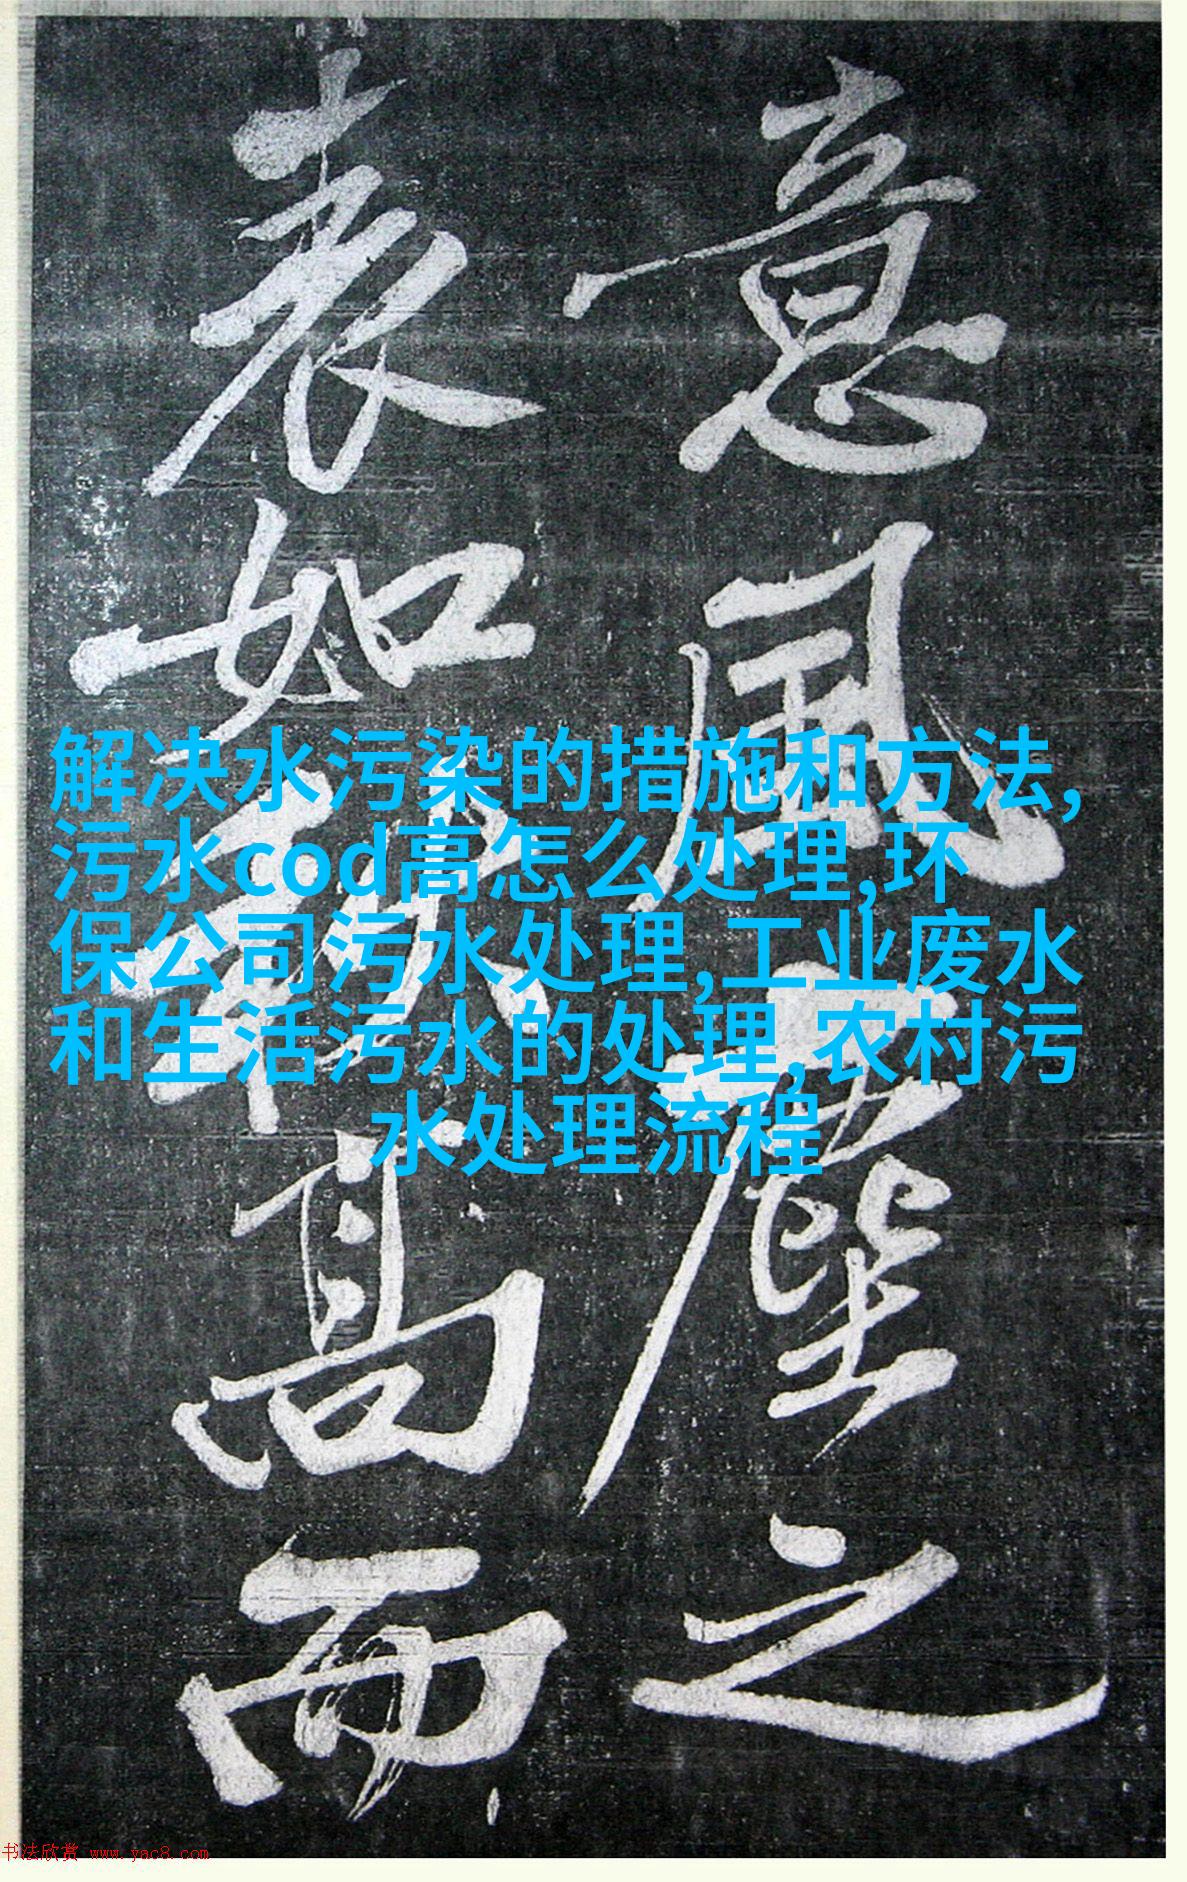 意風塵之
表如高而
解决水污染的措施和方法,
污水cod高怎么处理,环
保公司污水处理,工业废水
和生活污水的处理,农村污
水处理流程
书法欣赏 www.yac8.com